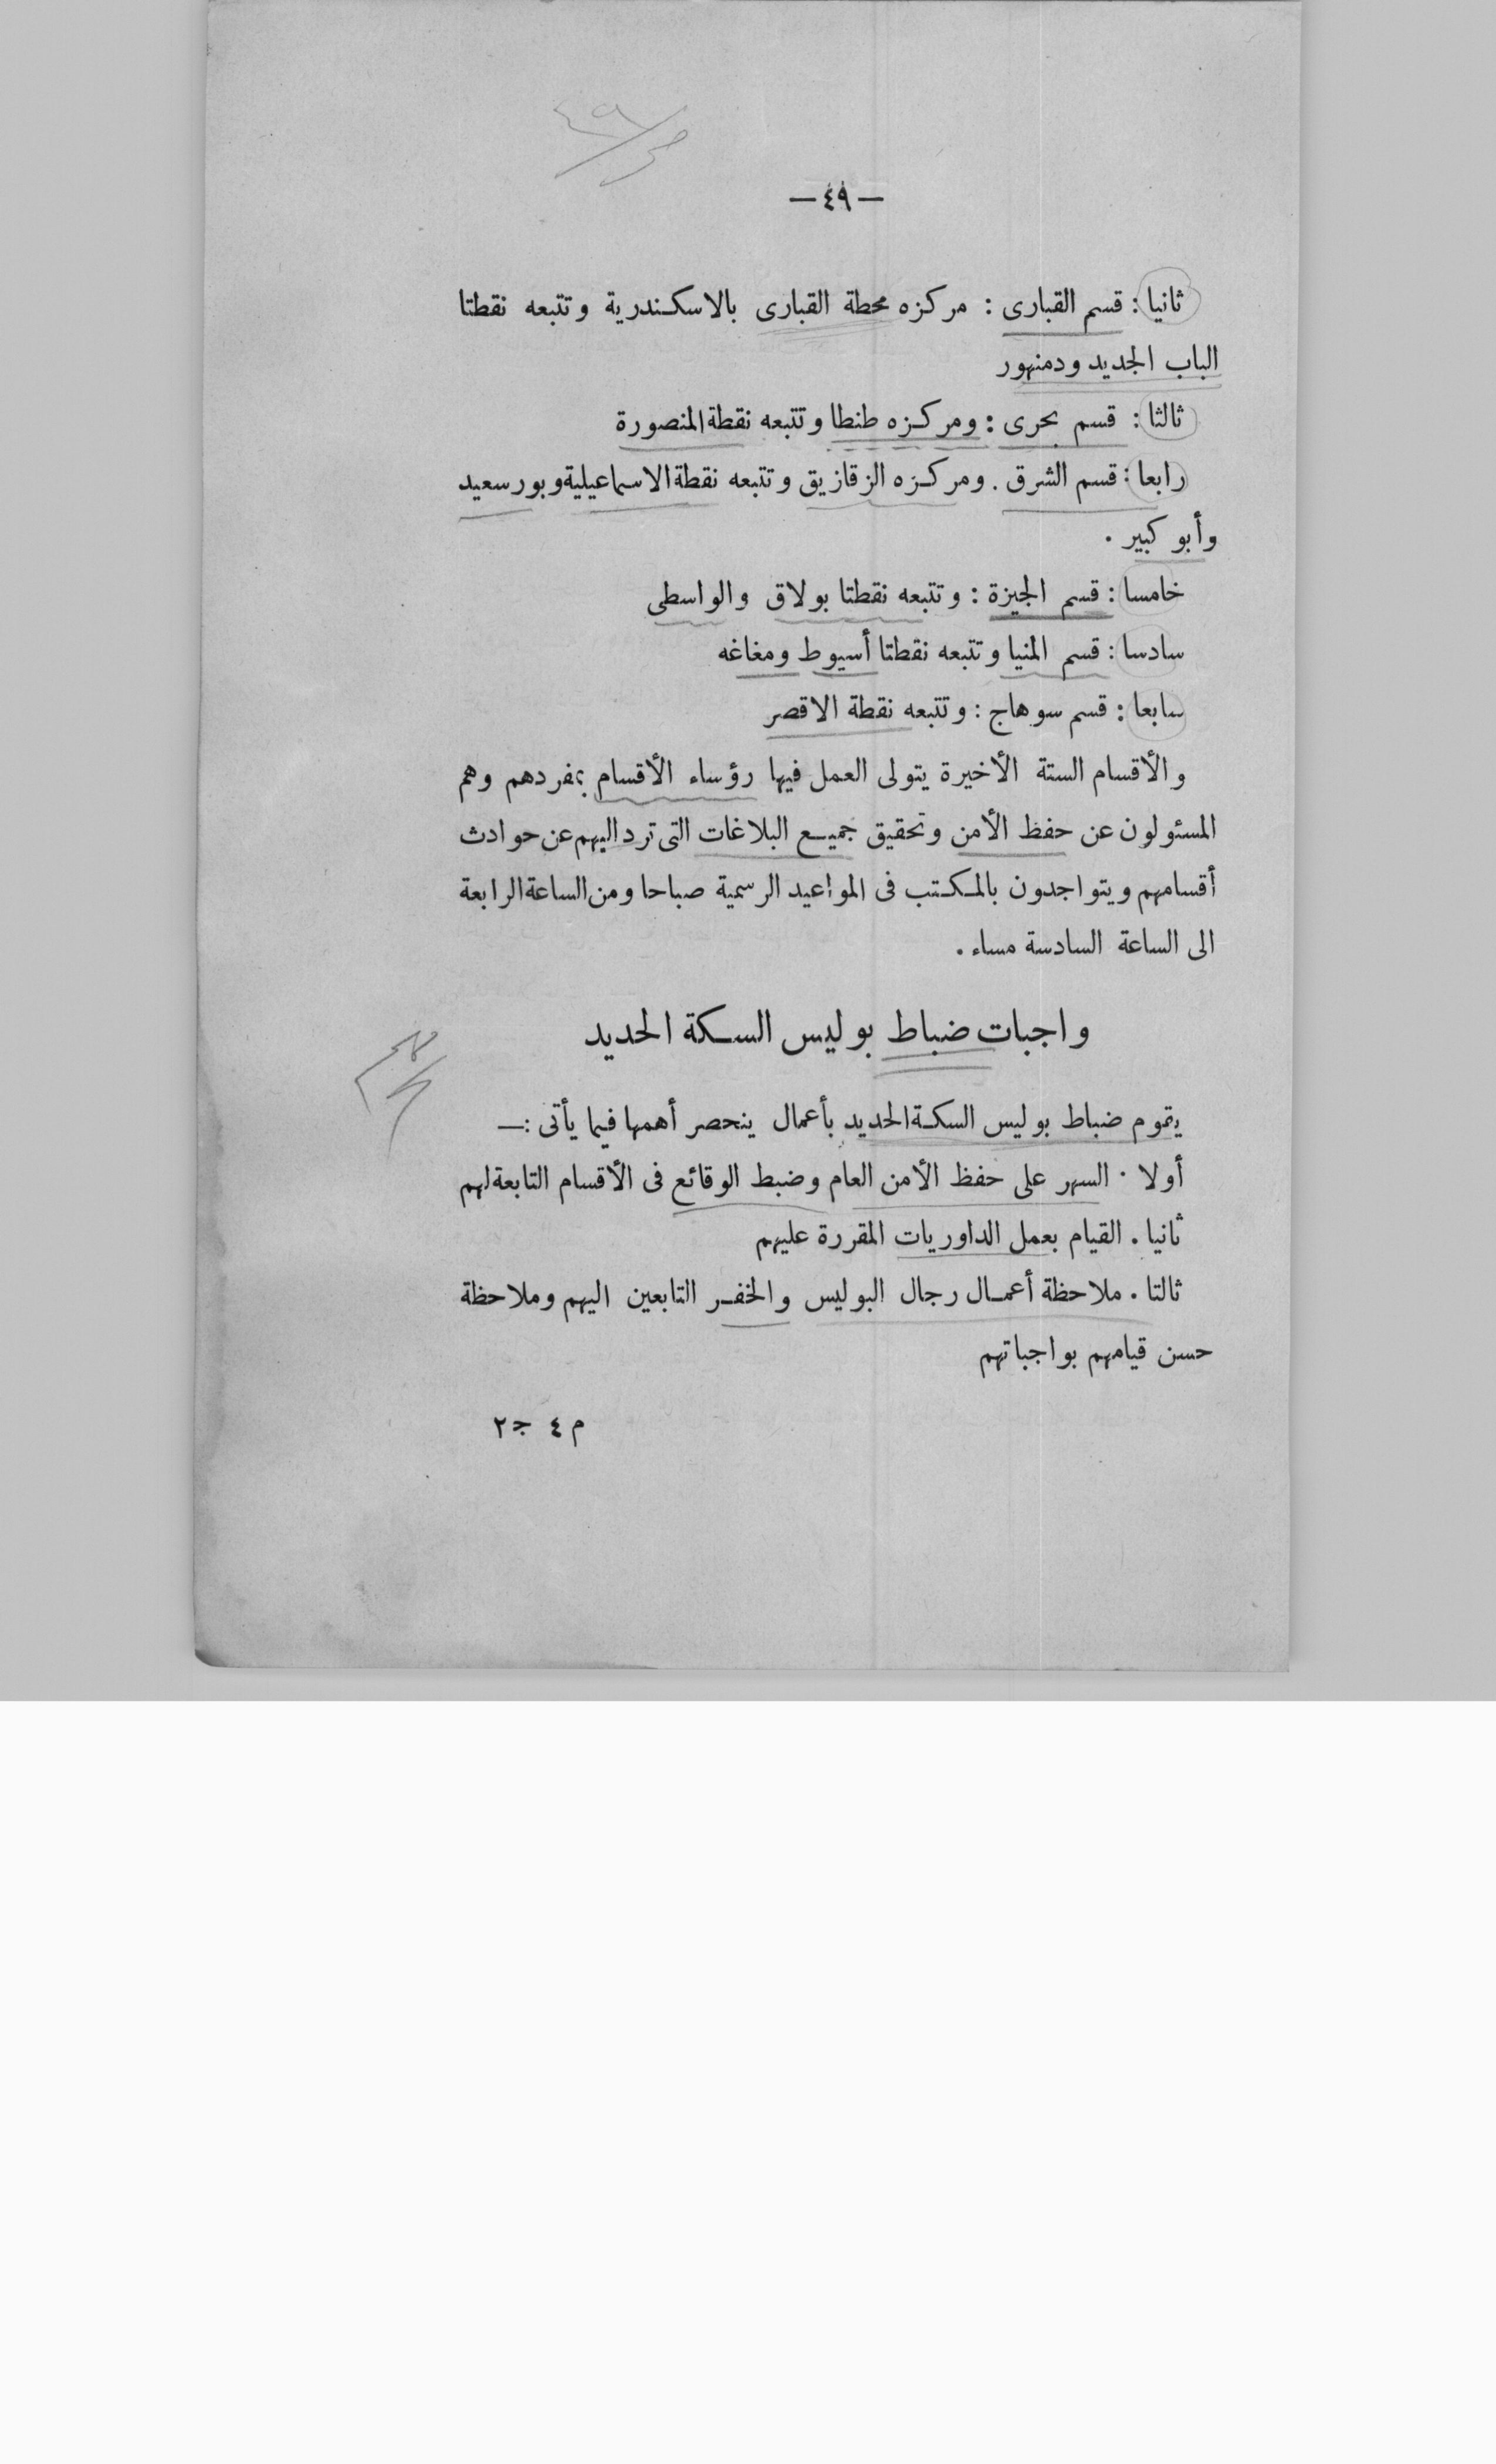 — ٤٩ —
ثانيا : قسم القبارى : مركزه محطة القبارى بالاسكندرية وتتبعه نقطتا
الباب الجديد ودمنهور
ثالثا : قسم بحرى : ومركزه طنطا وتتبعه نقطة المنصورة
رابعا : قسم الشرق . ومركزه الزقازيق وتتبعه نقطة الاسماعيلية وبورسعيد
وأبو كبير .
خامسا : قسم الجيزة : وتتبعه نقطتا بولاق والواسطى
سادسا : قسم المنيا وتتبعه نقطتا أسيوط ومغاغه
سابعا : قسم سوهاج : وتتبعه نقطة الاقصر
والأقسام الستة الأخيرة يتولى العمل فيها رؤساء الأقسام بمفردهم وهم
المسئولون عن حفظ الأمن وتحقيق جميع البلاغات التى ترد اليهم عن حوادث
أقسامهم ويتواجدون بالمكتب فى المواعيد الرسمية صباحا ومن الساعة الرابعة
الى الساعة السادسة مساء .
واجبات ضباط بوليس السكة الحديد
يقوم ضباط بوليس السكة الحديد بأعمال ينحصر أهمها فيما يأتى :—
أولا . السهر على حفظ الأمن العام وضبط الوقائع فى الأقسام التابعة لهم
ثانيا . القيام بعمل الداوريات المقررة عليهم
ثالتا . ملاحظة أعمال رجال البوليس والخفر التابعين اليهم وملاحظة
حسن قيامهم بواجباتهم
م ٤ ج ٢